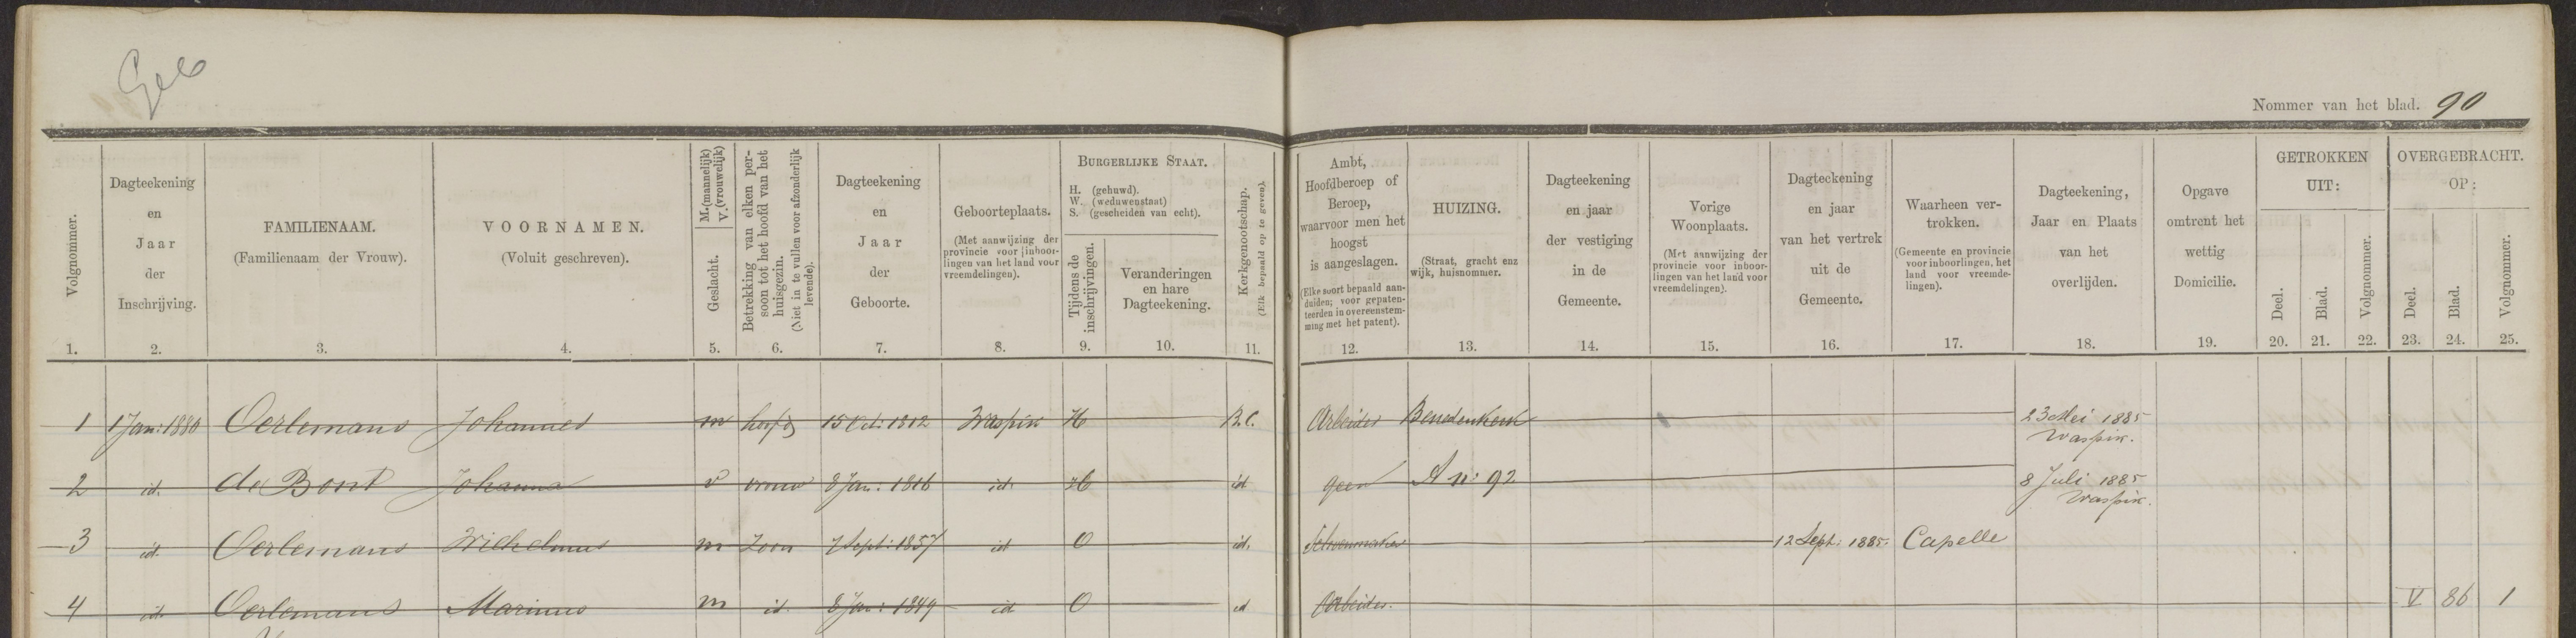 Geb
Nommer van het blad. 90
Volgnommer.
Dagteekening
en
Jaar
der
Inschrijving.
FAMILIENAAM.
(Familienaam der Vrouw).
VOORNAMEN.
(Voluit geschreven).
M. (mannelijk)
V. (vrouwelijk)
Geslacht.
Betrekking van elken per-
soon tot het hoofd van het
huisgezin.
(Niet in te vullen voor afzonderlijk
levende).
Dagteekening
en
Jaar
der
Geboorte.
Geboorteplaats.
(Met aanwijzing der
provincie voor inboor-
lingen van het land voor
vreemdelingen).
BURGERLIJKE STAAT.
H. (gehuwd).
W. (weduwenstaat)
S. (gescheiden van echt).
Tijdens de
inschrijvingen.
Veranderingen
en hare
Dagteekening.
Kerkgenootschap.
(Elk bepaald op te geven).
Ambt,
Hoofdberoep of
Beroep,
waarvoor men het
hoogst
is aangeslagen.
(Elke soort bepaald aan-
duiden; voor gepaten-
teerden in overeenstem-
ming met het patent).
HUIZING.
(Straat, gracht enz
wijk, huisnommer.
Dagteekening
en jaar
der vestiging
in de
Gemeente.
Vorige
Woonplaats.
(Met aanwijzing der
provincie voor inboor-
lingen van het land voor
vreemdelingen).
Dagteekening
en jaar
van het vertrek
uit de
Gemeente.
Waarheen ver-
trokken.
(Gemeente en provincie
voor inboorlingen, het
land voor vreemde-
lingen).
Dagteekening,
Jaar en Plaats
van het
overlijden.
Opgave
omtrent het
wettig
Domicilie.
GETROKKEN
UIT:
Deel.
Blad.
Volgnommer.
OVERGEBRACHT.
OP:
Deel.
Blad.
Volgnommer.
1. 2. 3. 4. 5. 6. 7. 8. 9. 10. 11. 12. 13. 14. 15. 16. 17. 18. 19. 20. 21. 22. 23. 24. 25.
1 1 Jan: 1880 Oerlemans Johannes m hoofd 15 Oct: 1812 Waspik H R.C. Arbeider Benedenkerk 23 Mei 1885
Waspik.
2 id. de Bont Johanna v vrouw 8 Jan: 1816 id. H id. geen A n: 92 8 Juli 1885
Waspik.
3 id. Oerlemans Wilhelmus m Zoon 7 Sept: 1857 id O id. Schoenmaker 12 Sept: 1885. Capelle
4 id. Oerlemans Marinus m id. 8 Jan: 1849 id O id Arbeider. V 86 1